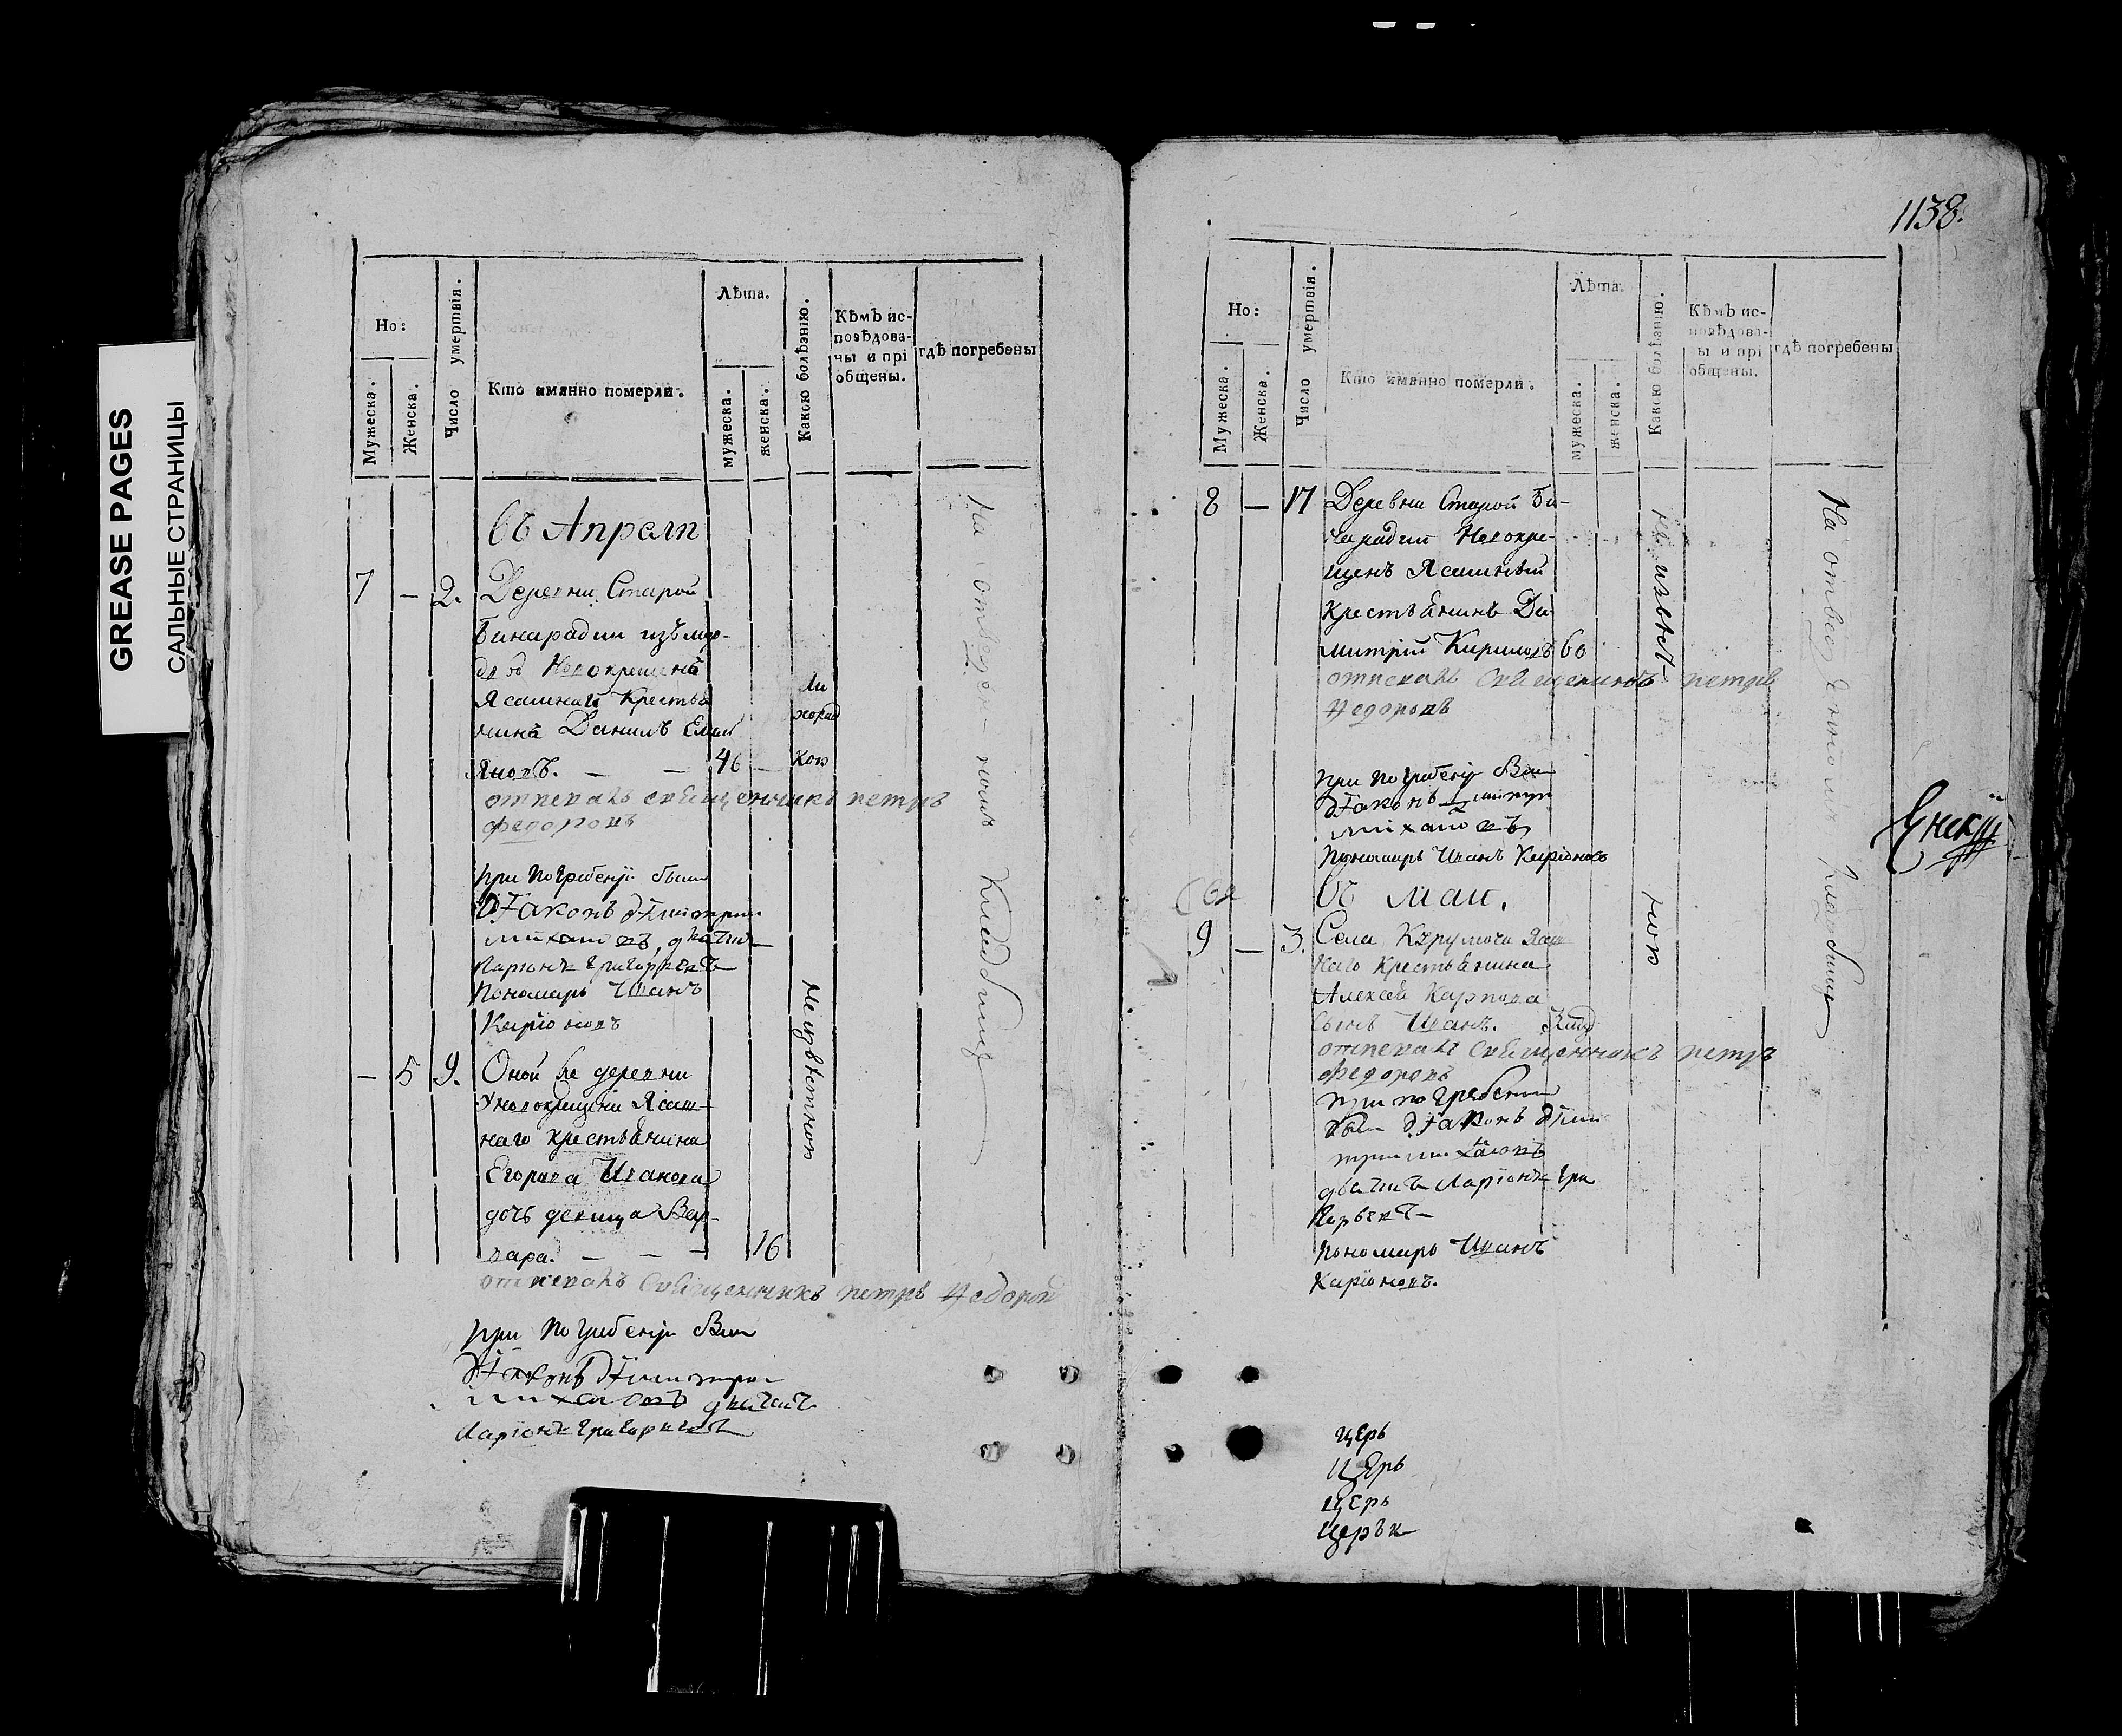 GREASE PAGES
САЛЬНЫЕ СТРАНИЦЫ
Но:
Мужеска.
Женска.
Число умертвія.
Кто имянно померли.
Лѣта.
мужеска.
женска.
Какою болѣзнію.
Кѣмъ ис-
повѣдова-
ны и прі
общены.
гдѣ погребены
въ Апреле
7 — 2. Деревни Старой
Бинарадки изъ
Новокрещенъ
Ясашней Крестья
нинъ Данилъ Емел
яновъ. — — 46 —
Ли
хорад
кою
отпевалъ священникъ петръ
федоровъ
при погребеніи были
Діаконъ Дімитри
михаиловъ, дьячикъ
Ларіонъ Григорьевъ
Пономарь Иванъ
Каріоновъ
— 5 9. Оной же деревни
Уновокрещена Ясаш-
наго крестьянина
Егорова Иванова
дочь девица Вар-
вара. — — — 16
Не извѣстною
отпевалъ Священникъ петръ Федоров
при погребеніи были
Діаконъ Дімитри
михаиловъ дьячикъ
Ларіонъ Григорьевъ
На отведен-номъ Кладбище
1138.
Но:
Мужеска.
Женска.
Число умертвія.
Кто имянно померли.
Лѣта.
мужеска.
женска.
Какою болѣзнію.
Кѣмъ ис-
повѣдова-
ны и прі
общены.
гдѣ погребены
8 — 17 Деревни Старой Би-
нарадки Новокре-
щенъ Ясашней
крестьянинъ Ди
митрій Кириловъ 60
не извѣст-
ною
отпевалъ Священникъ петръ
Федоровъ
при погребеніи были
діаконъ Димитри
михаиловъ
Пономарь Иванъ Каріоновъ
въ маи.
9 — 3. Села Кърумочи Ясаш
наго крестьянина
Алексея Карпова
сынъ Иванъ.
отпевалъ Священникъ петръ
Федоровъ
при погребении
были діаконъ Дими
три михаиловъ
дьячикъ Ларіонъ Гри
горьевъ
пономарь Иванъ
Каріоновъ.
На отведенномъ Кладбище
церь
церь
церь
церьк